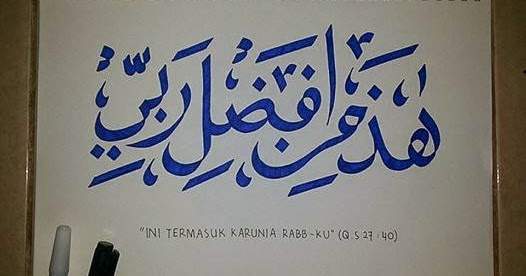 هٰذَا مِنْ فَضْلِ رَبِّي
"INI TERMASUK KARUNIA RABB-KU" (Q.S 27:40)